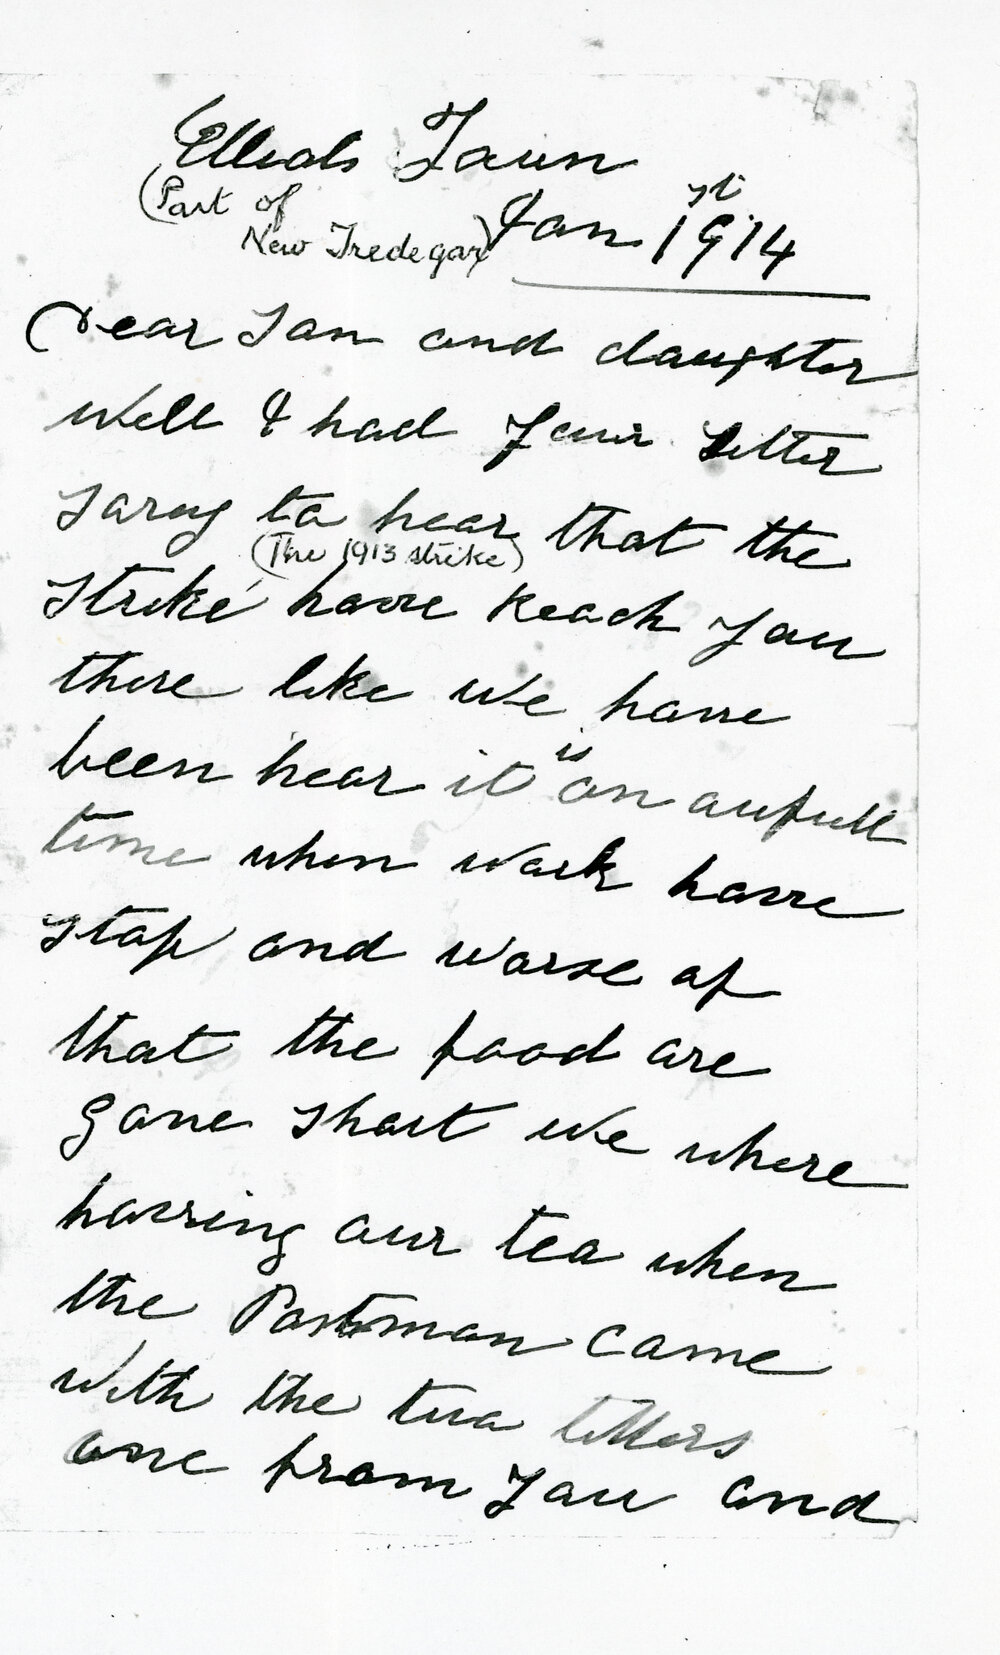 Elliots Town
(Part of
New Tredegar)
Jan 1st 1914
Dear Son and daughter
Well I had your letter
sorry to hear that the
(The 1913 strike)
strike have reach you
there like we have
been hear it is an aufull
time when work have
stop and worse of
that the food are
gone short we where
having our tea when
the Postman came
with the two letters
one from you and